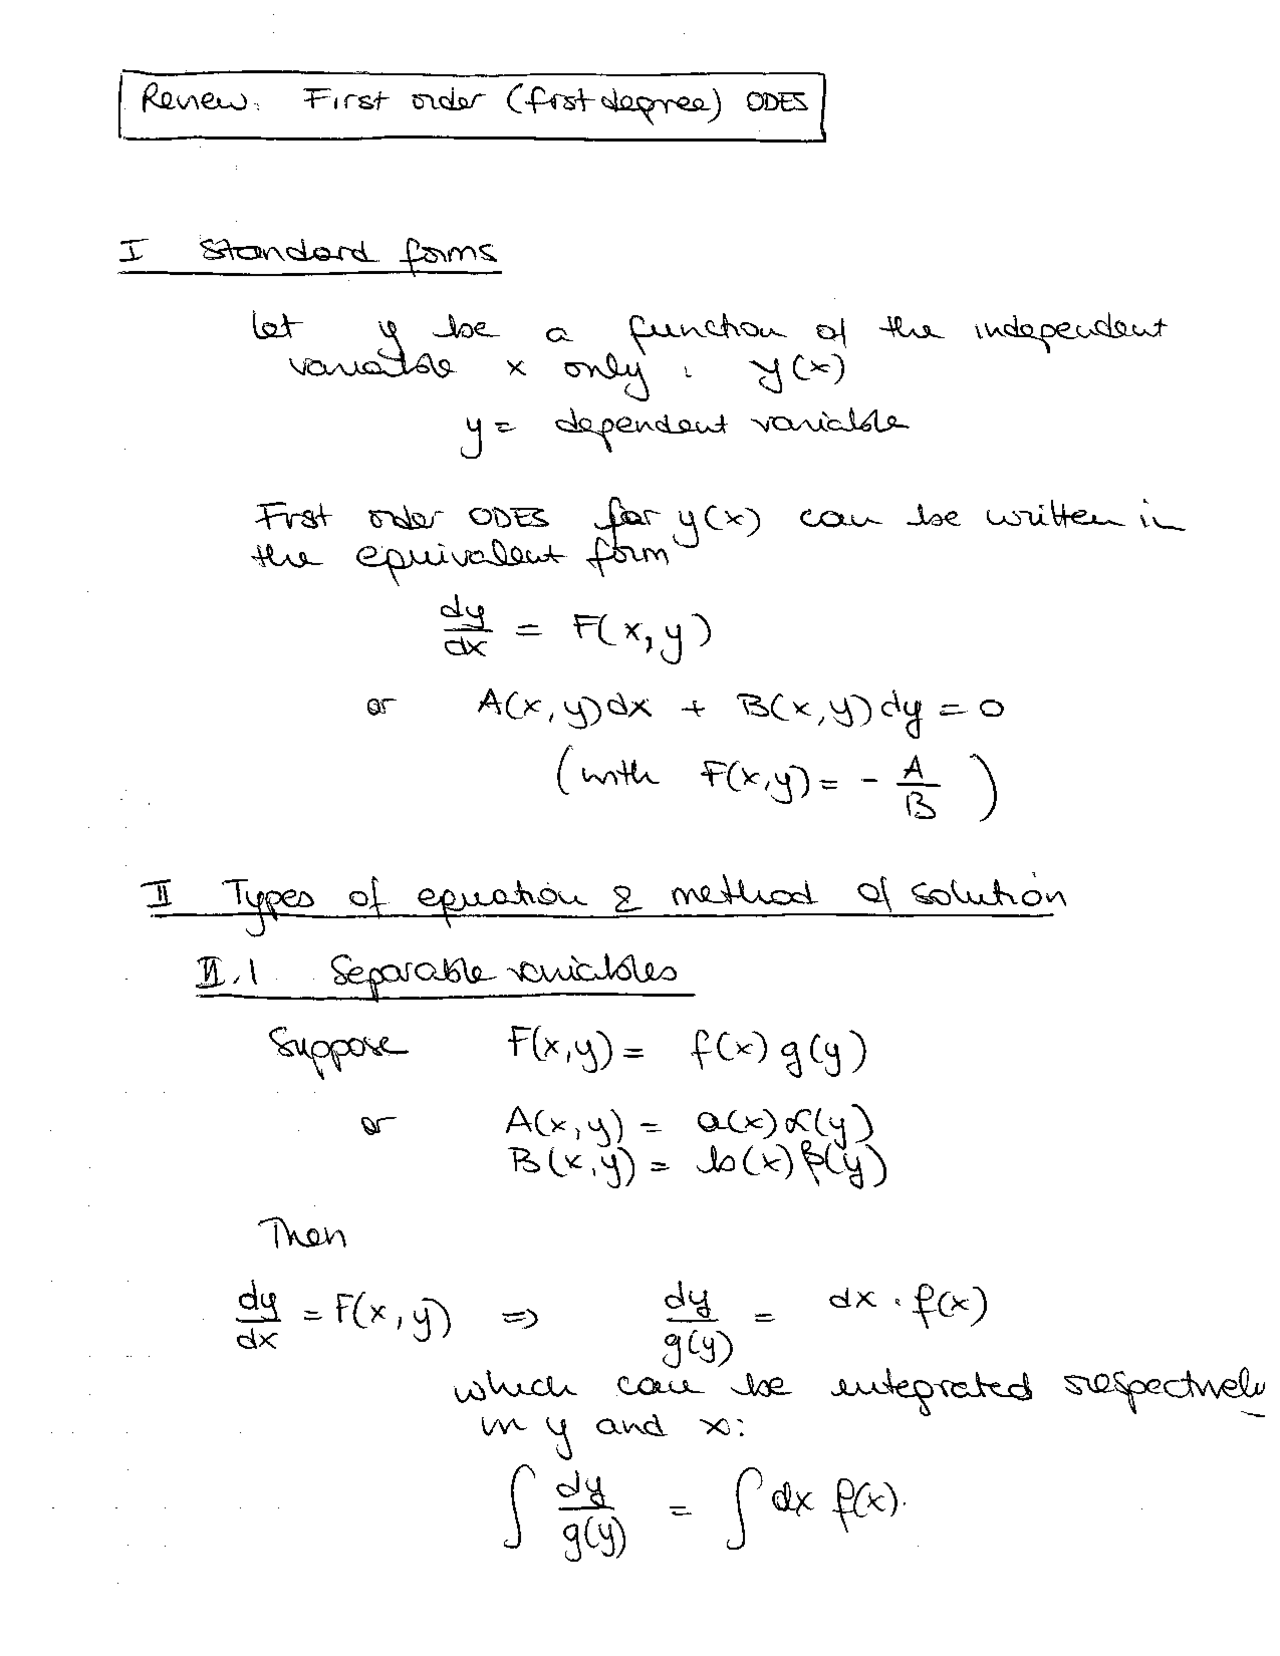 Review: First order (first degree) ODES
I Standard forms
Let y be a function of the independent
variable x only : y(x)
y = dependent variable
First order ODES for y(x) can be written in
the equivalent form
dy/dx = F(x,y)
or A(x,y)dx + B(x,y)dy = 0
(with F(x,y) = - A/B )
II Types of equation & method of solution
II.1 Separable variables
Suppose F(x,y) = f(x) g(y)
or A(x,y) = a(x) α(y)
B(x,y) = b(x) β(y)
Then
dy/dx = F(x,y) ⇒ dy/g(y) = dx . f(x)
which can be integrated respectively
in y and x:
∫ dy/g(y) = ∫ dx f(x).